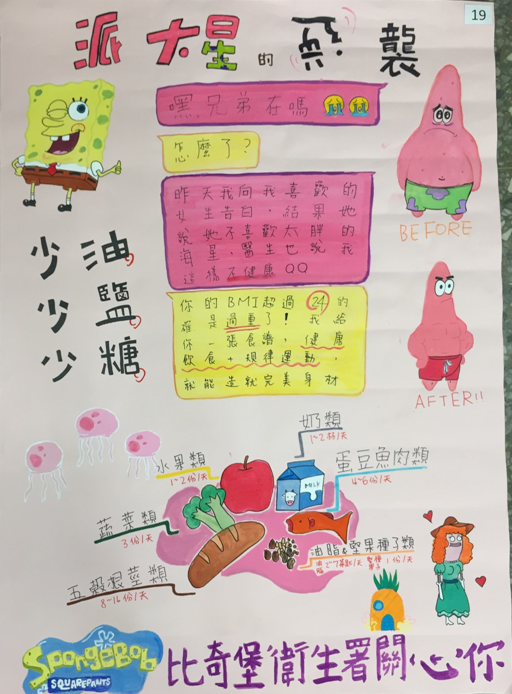 19
派大星的襲
嘿兄弟在嗎
怎麼了?
昨天我向我喜歡的
女生告白,結果她
說她不喜歡太胖的
海星,醫生也說我
這樣不健康QQ
BEFORE
少油
少鹽
少糖
你的BMI超過24的
確是過重了!我給
你一張食譜,健康
飲食+規律運動,
就能造就完美身材
AFTER!!
奶類
1~2杯/天
水果類
1~2份/天
MILK
蛋豆魚肉類
4~6份/天
蔬菜類
3份/天
油脂&堅果種子類
油脂2~7茶匙/天 堅果種子1份/天
五穀根莖類
8~16份/天
SpongeBob
SQUAREPANTS
比奇堡衛生署關心你